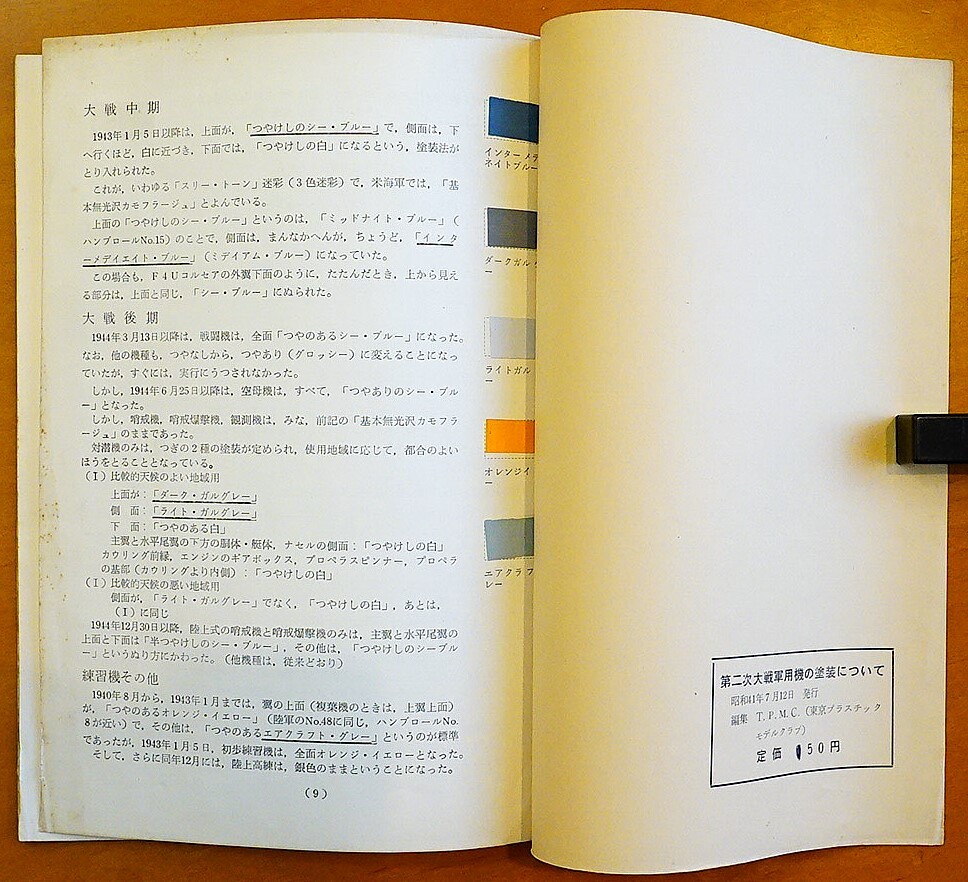 大戦中期
1943年1月5日以降は，上面が，「つやけしのシー・ブルー」で，側面は，下
へ行くほど，白に近づき，下面では，「つやけしの白」になるという，塗装法が
とり入れられた。
これが，いわゆる「スリー・トーン」迷彩（3色迷彩）で，米海軍では，「基
本無光沢カモフラージュ」とよんでいる。
上面の「つやけしのシー・ブルー」というのは，「ミッドナイト・ブルー」（
ハンブロールNo.15）のことで，側面は，まんなかへんが，ちょうど，「インタ
ーメデイエイト・ブルー」（ミデイアム・ブルー）になっていた。
この場合も，F4Uコルセアの外翼下面のように，たたんだとき，上から見え
る部分は，上面と同じ，「シー・ブルー」にぬられた。
大戦後期
1944年3月13日以降は，戦闘機は，全面「つやのあるシー・ブルー」になった。
なお，他の機種も，つやなしから，つやあり（グロッシー）に変えることになっ
ていたが，すぐには，実行にうつされなかった。
しかし，1944年6月25日以降は，空母機は，すべて，「つやありのシー・ブル
ー」となった。
しかし，哨戒機，哨戒爆撃機，観測機は，みな，前記の「基本無光沢カモフラ
ージュ」のままであった。
対潜機のみは，つぎの2種の塗装が定められ，使用地域に応じて，都合のよい
ほうをとることとなっている。
（I）比較的天候のよい地域用
上面が：「ダーク・ガルグレー」
側　面：「ライト・ガルグレー」
下　面：「つやのある白」
主翼と水平尾翼の下方の胴体・艇体，ナセルの側面：「つやけしの白」
カウリング前縁，エンジンのギアボックス，プロペラスピンナー，プロペラ
の基部（カウリングより内側）：「つやけしの白」
（I）比較的天候の悪い地域用
側面が，「ライト・ガルグレー」でなく，「つやけしの白」，あとは，
（I）に同じ
1944年12月30日以降，陸上式の哨戒機と哨戒爆撃機のみは，主翼と水平尾翼の
上面と下面は「半つやけしのシー・ブルー」，その他は，「つやけしのシーブル
ー」というぬり方にかわった。（他機種は，従来どおり）
練習機その他
1940年8月から，1943年1月までは，翼の上面（複葉機のときは，上翼上面）
が，「つやのあるオレンジ・イエロー」（陸軍のNo.48に同じ，ハンブロールNo.
8が近い）で，その他は，「つやのあるエアクラフト・グレー」というのが標準
であったが，1943年1月5日，初歩練習機は，全面オレンジ・イエローとなった。
そして，さらに同年12月には，陸上高練は，銀色のままということになった。
（9）
インターメデ
ネイトブルー
ダークガル
ー
ライトガル
ー
オレンジイ
ー
エアクラフ
レー
第二次大戦軍用機の塗装について
昭和41年7月12日　発行
編集　T.P.M.C.（東京プラスチック
モデルクラブ）
定価　50円